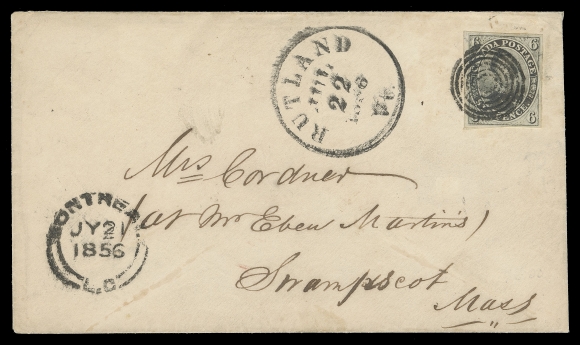 RUTLAND Vt.
JUL
22
1856
6 CANADA POSTAGE 6
PENCE 6
Mrs Cordner
(at Mr Eben Martin's)
Swampscot
Mass
MONTREAL
JY 21
1856
L.C